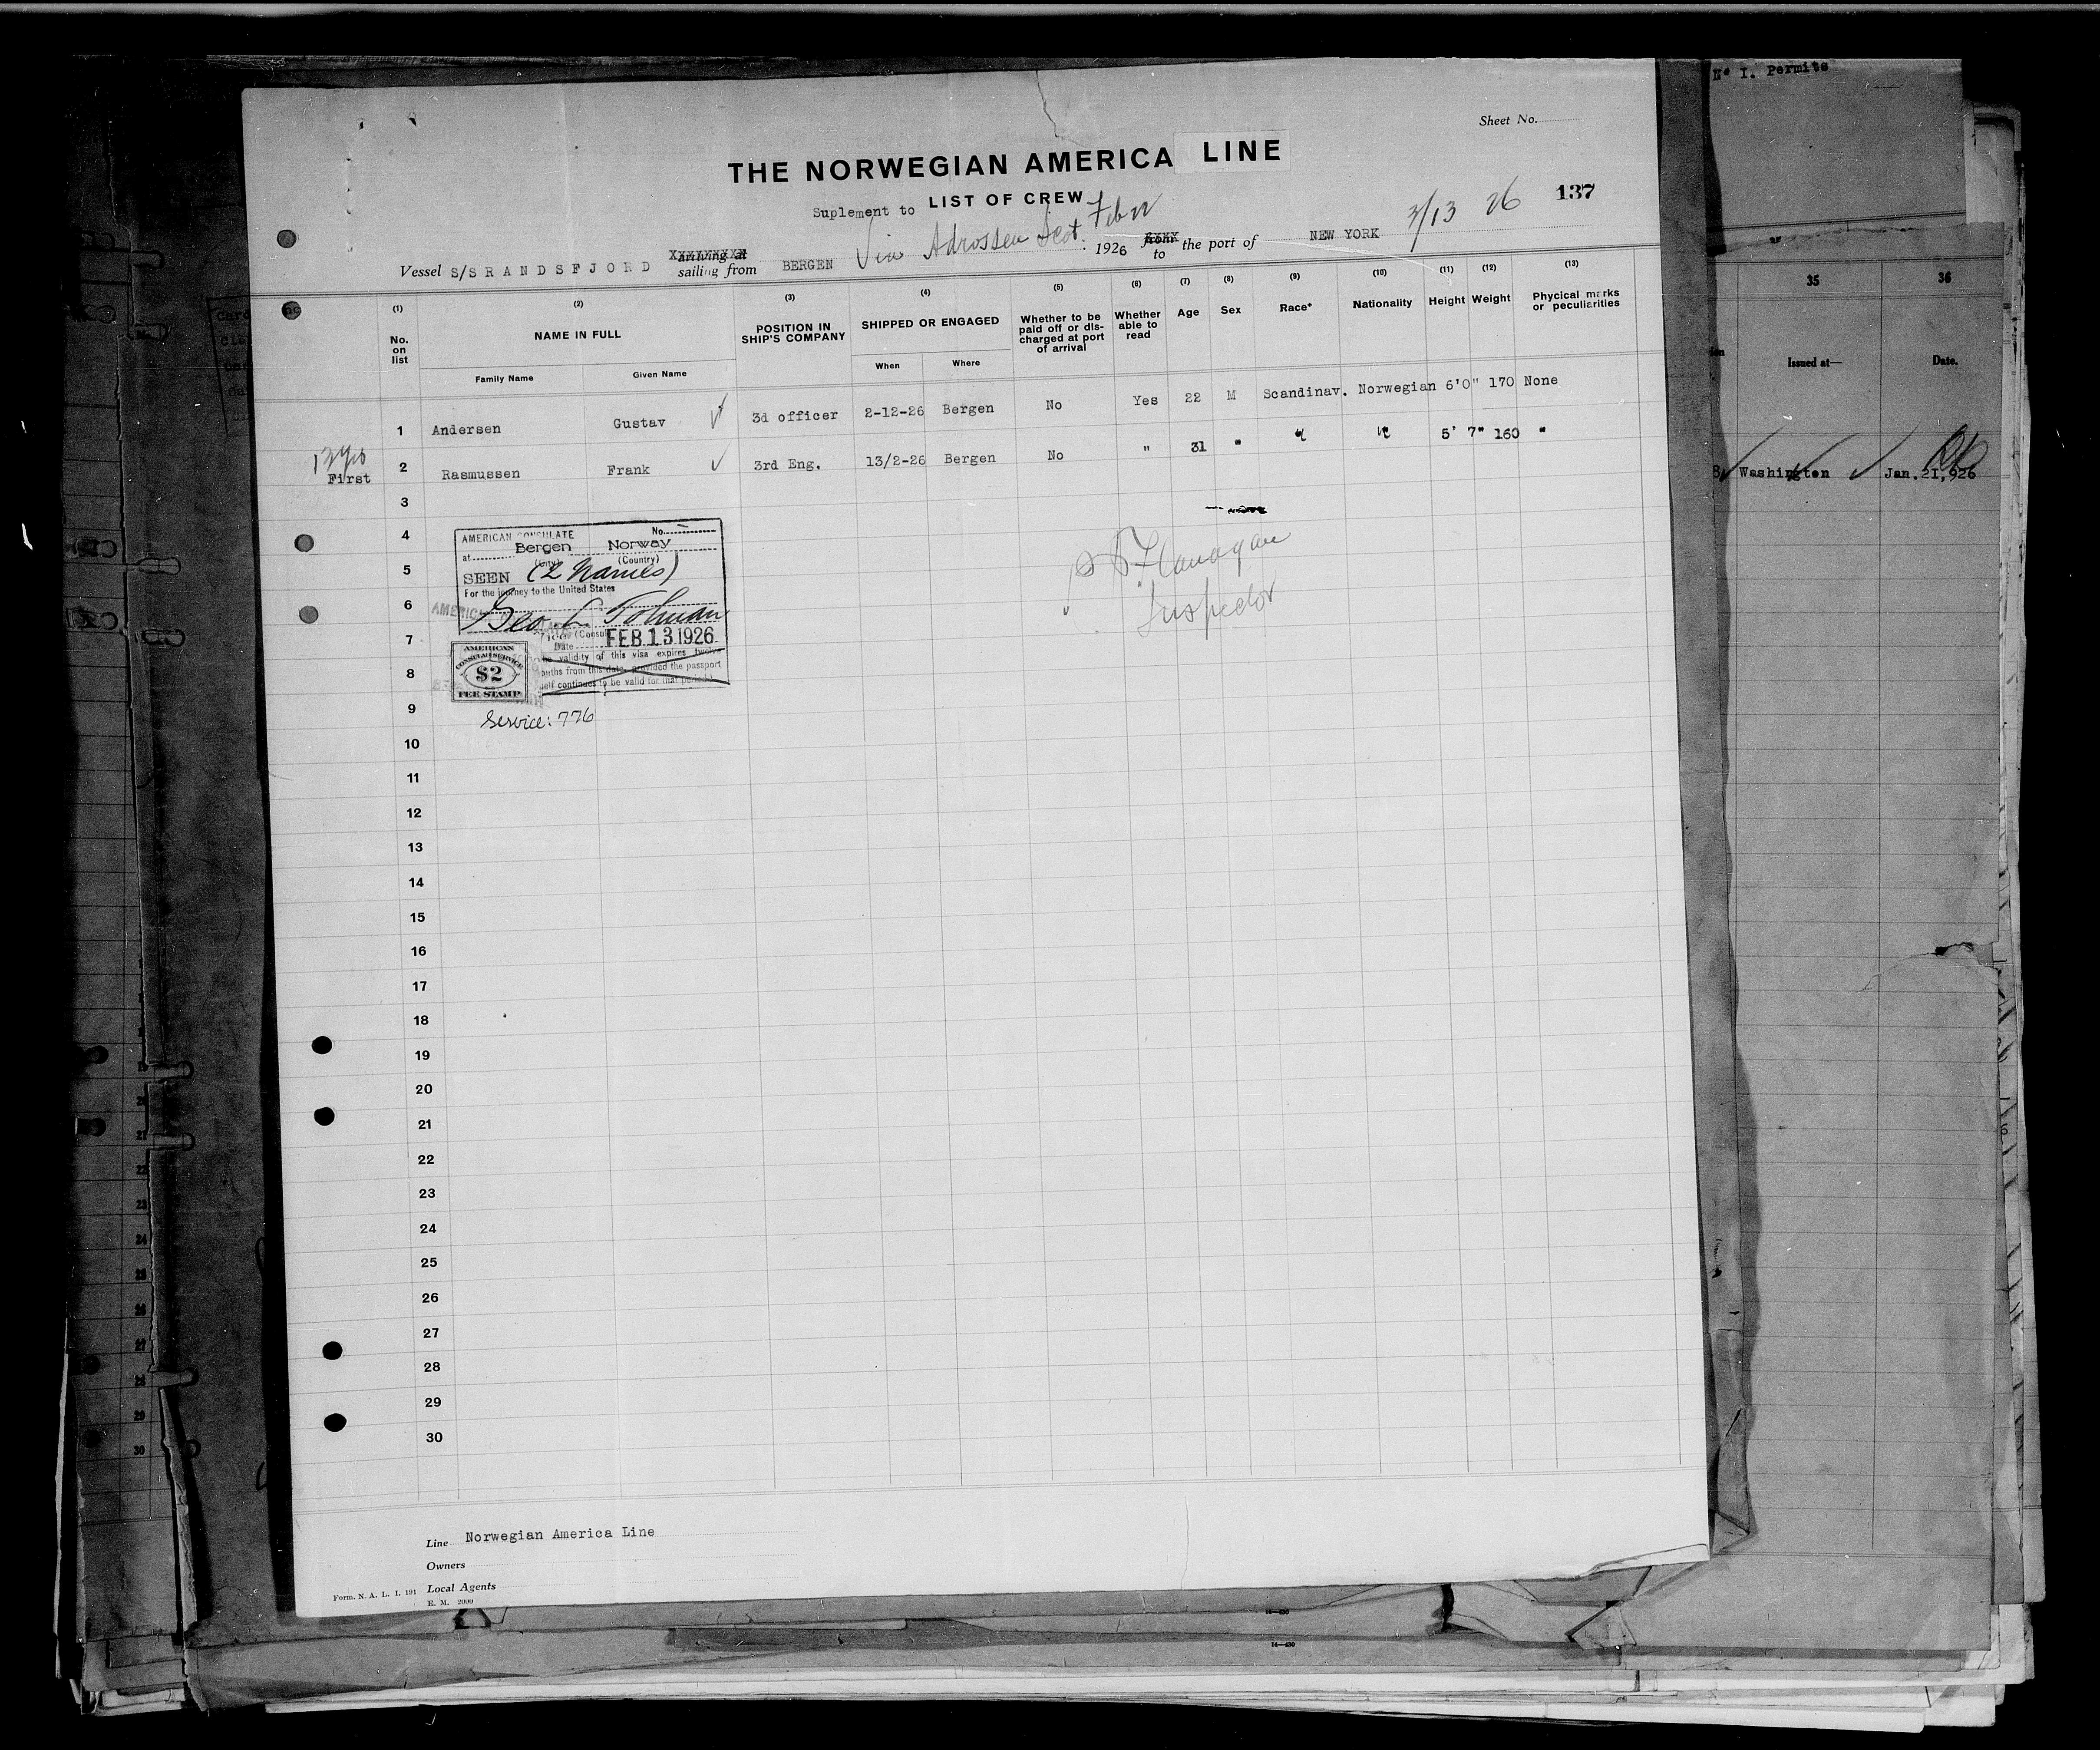 Nº I. Permits
Sheet No.
THE NORWEGIAN AMERICA LINE
Suplement to LIST OF CREW
137
Via Adrossen Scot. Feb 22
3/13 26
Vessel S/S RANDSFJORD arriving at sailing from BERGEN 1926 from to the port of NEW YORK
(1) (2) (3) (4) (5) (6) (7) (8) (9) (10) (11) (12) (13)
No. on list
NAME IN FULL
Family Name Given Name
POSITION IN SHIP'S COMPANY
SHIPPED OR ENGAGED
When Where
Whether to be paid off or discharged at port of arrival
Whether able to read
Age Sex Race* Nationality Height Weight
Physical marks or peculiarities
35 36
Issued at— Date.
1 Andersen Gustav 3d officer 2-12-26 Bergen No Yes 22 M Scandinav. Norwegian 6'0" 170 None
First 2 Rasmussen Frank 3rd Eng. 13/2-26 Bergen No " 31 " " " 5' 7" 160 "
Washington Jan.21,926
3
4
5
6
7
8
9
10
11
12
13
14
15
16
17
18
19
20
21
22
23
24
25
26
27
28
29
30
AMERICAN CONSULATE No.
at Bergen Norway
(City) (Country)
SEEN (2 Names)
For the journey to the United States
Geo. L. Tolman
Date FEB 13 1926
validity of this visa expires twelve
months from this date, provided the passport
self continues to be valid for that period.
AMERICAN
CONSULAR SERVICE
$2
FEE STAMP
Service: 776
Flanagan
Inspector
Line Norwegian America Line
Owners
Local Agents
Form. N. A. L. I. 191
E. M. 2000
14—430